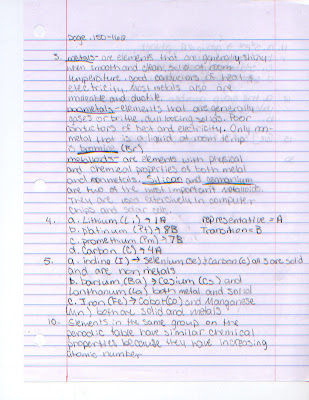 page 150-162
3. metals- are elements that are generally shiny
when smooth and clean, solid at room
temperature, good conductors of heat &
electricity. Most metals also are
malleable and ductile.
nonmetals- elements that are generally
gases or brittle, dull looking solids. Poor
conductors of heat and electricity. Only non-
metal that is a liquid at room temp
is bromine (Br)
metalloids- are elements with physical
and chemical properties of both metal
and nonmetals. Silicon and germanium
are two of the most important metalloids.
They are used extensively in computer
chips and solar cells.
4. a. Lithium (Li) → 1A representative = A
b. platinum (Pt) → 8B Transition = B
c. promethium (Pm) → 7B
d. Carbon (C) → 4A
5. a. iodine (I) → Selenium (Se) & Carbon (C) all 3 are solid
and are non metals
b. barium (Ba) → Cesium (Cs) and
Lanthanum (La) both metal and solid
c. Iron (Fe) → Cobalt (Co) and Manganese
(Mn) both are solid and metals
10. Elements in the same group on the
periodic table have similar chemical
properties because they have increasing
atomic number